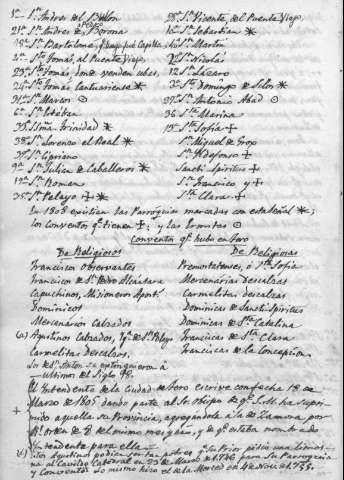 5ª - Sn. Andres del Bollon
21ª Sn. Andres de Borona
Sn. Bartolomé
Sto. Tomás, al Puente Viejo
23ª Sto. Tomás, donde venden ubas,
24ª Sto. Tomas Cantuariense *
31ª Sn. Marcos ⊙
6ª Sn. Esteban
35ª SSma. Trinidad *
38ª Sn. Lorenzo el Real *
37ª Sn. Cipriano
9ª Sn. Julian de Caballeros *
19ª Sn. Roman
35ª Sn. Pelayo + *
28ª Sn. Vicente, del Puente Viejo
1ª Sn. Sebastian *
Sn. Martin
2ª Sn. Nicolás
12ª Sn. Lázaro
3ª Sto. Domingo de Silos *
27ª Sn. Antonio Abad ⊙
36ª Sta. Marina
15ª Sta. Sofia +
Sn. Miguel de Grox
Sn. Ildefonso +
Sancti Spiritus +
Sn. Francisco, y +
Sta. Clara +
En 1808 existian las Parroquias marcadas con esta señal * ;
los conventos qe. tienen + ; y las Ermitas ⊙
Conventos qe. hubo en Toro
De Religiosos
Francisco Observantes
Francisco de Sn. Pedro Alcántara
Capuchinos, Misionero Apost.
Dominicos
Mercenarios Calzados
(a) Agustinos Calzados, Yg. de Sn. Pelayo
Carmelitas Descalzos.
Los de Sn. Anton se extinguieron á
ultimos del Siglo 98.
De Religiosas
Premonstatenses, ó Sta. Sofia
Mercenarias descalzas
Carmelitas descalzas
Dominicas de Sancti Spiritus
Dominicas de Sta. Catalina
Franciscas de Sta. Clara
Franciscas de la Concepcion
El Yntendente de la Ciudad de Toro escrive con fecha 18 de
Marzo de 1805 dando parte al Sr. Obispo de qe. S.M. ha supri-
mido aquella su Provincia, agregandola á la de Zamora por
Rl. orden de 8 del mismo mes y año, y de qe. estaba nombrado
Yntendente para ella
(a) Los Agustinos podian ser tan pobres qe. su Prior pidió una limos-
na al Cavildo Catedral en 23 de Marzo de 1746 para su Parroquia
y Convento. Lo mismo hizo el de la Merced en 4 de Nove. de 1738.